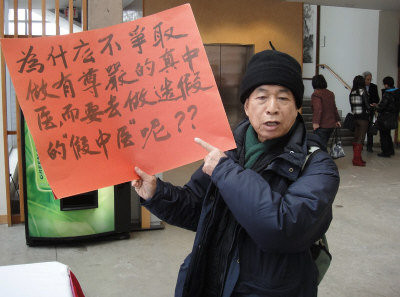 為什么不爭取
做有尊嚴的真中
医而要去做造假
的"假中医"呢??